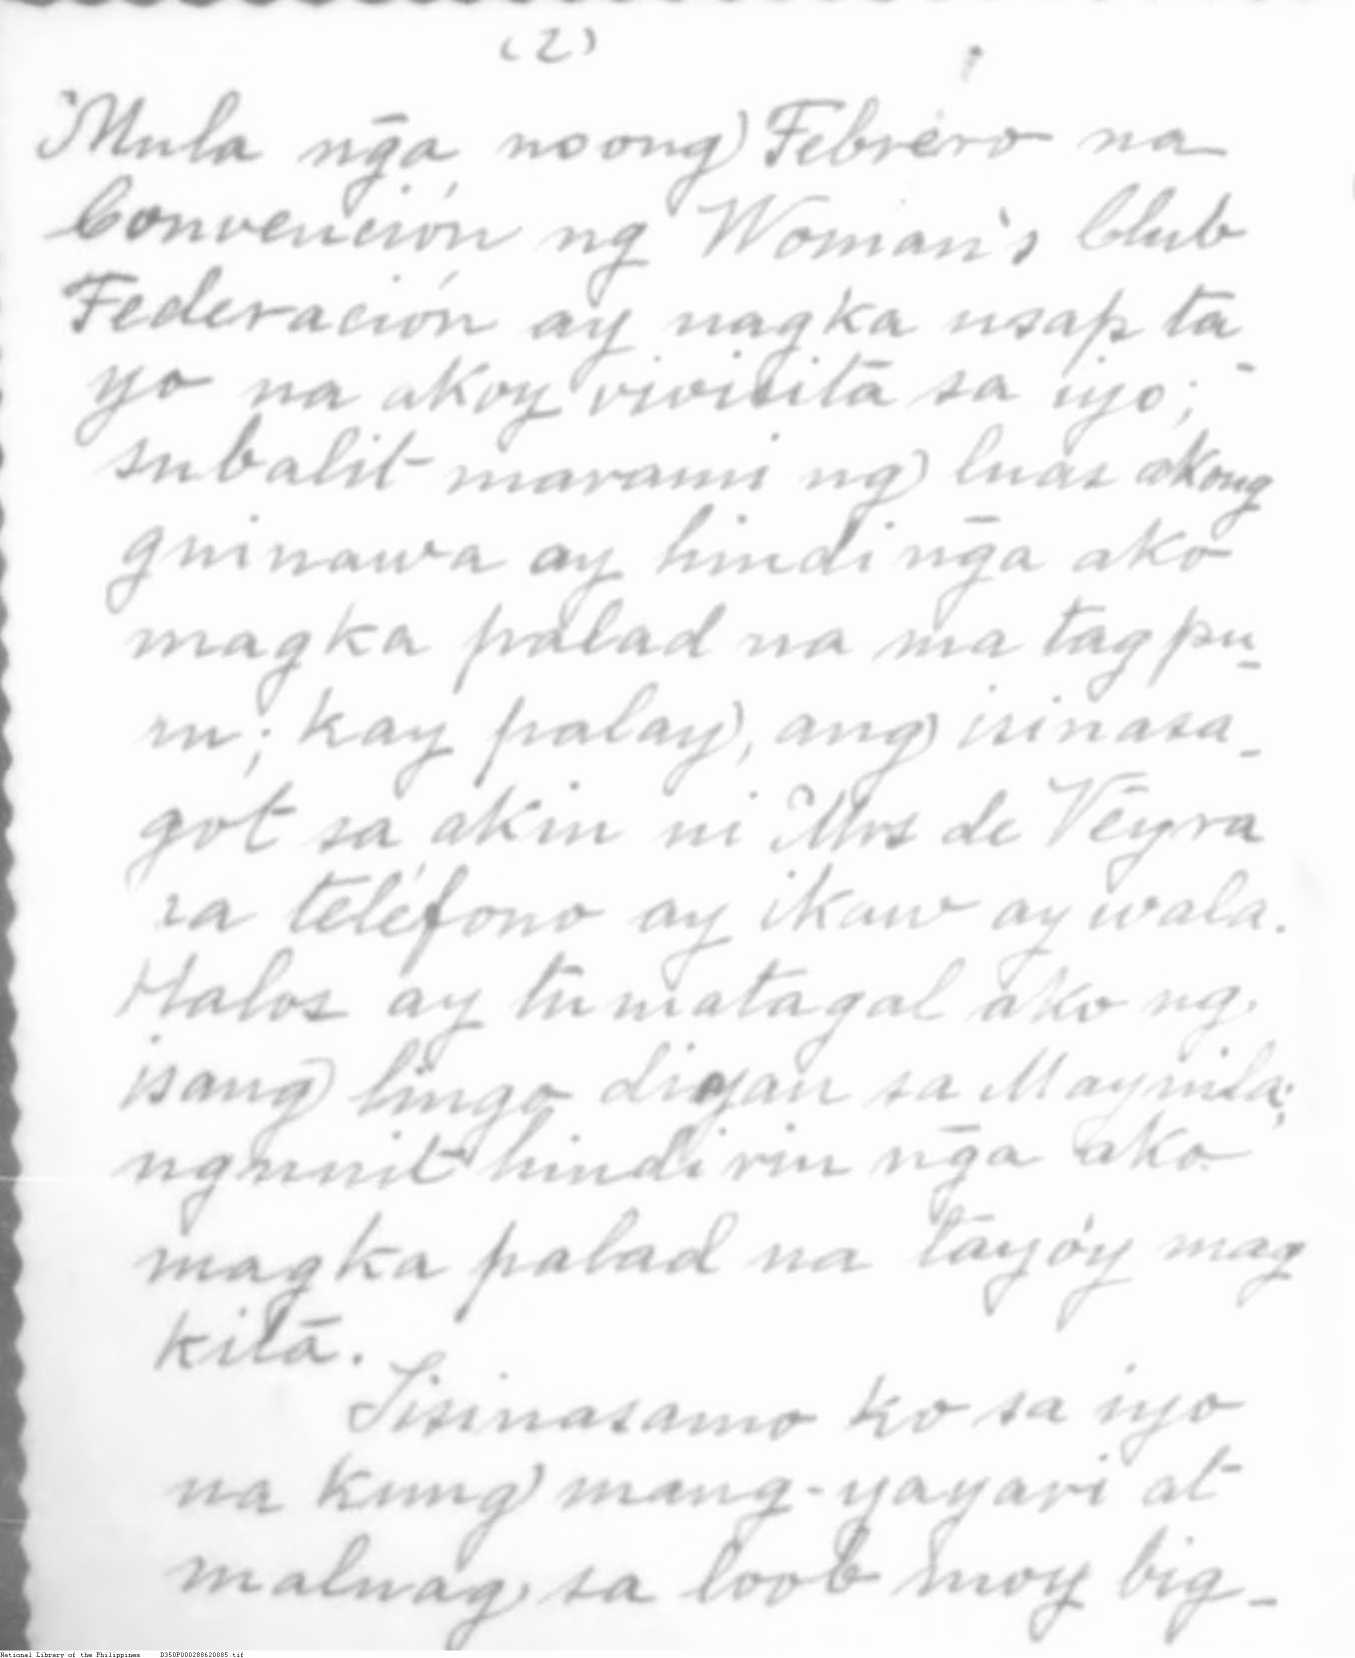 (2)
Mula n̄ga noong Febrero na
Convención ng Woman's Club
Federación ay nagka usap ta
yo na akoy vivisita sa iyo; -
subalit marami ng luas akong
guinawa ay hindi n̄ga ako
magka palad na ma tagpu-
ru; kay palay, ang isinasa-
got sa akin ni Mrs de Veyra
sa teléfono ay ikaw ay wala.
Halos ay tumatagal ako ng
isang lingo diyan sa Maynila;
ngunit hindi rin n̄ga ako
magka palad na tayóy mag
kita.
Sisinasamo ko sa iyo
na kung mang-yayari at
maluag sa loob moy big-
National Library of the Philippines D350P000288620885.tif